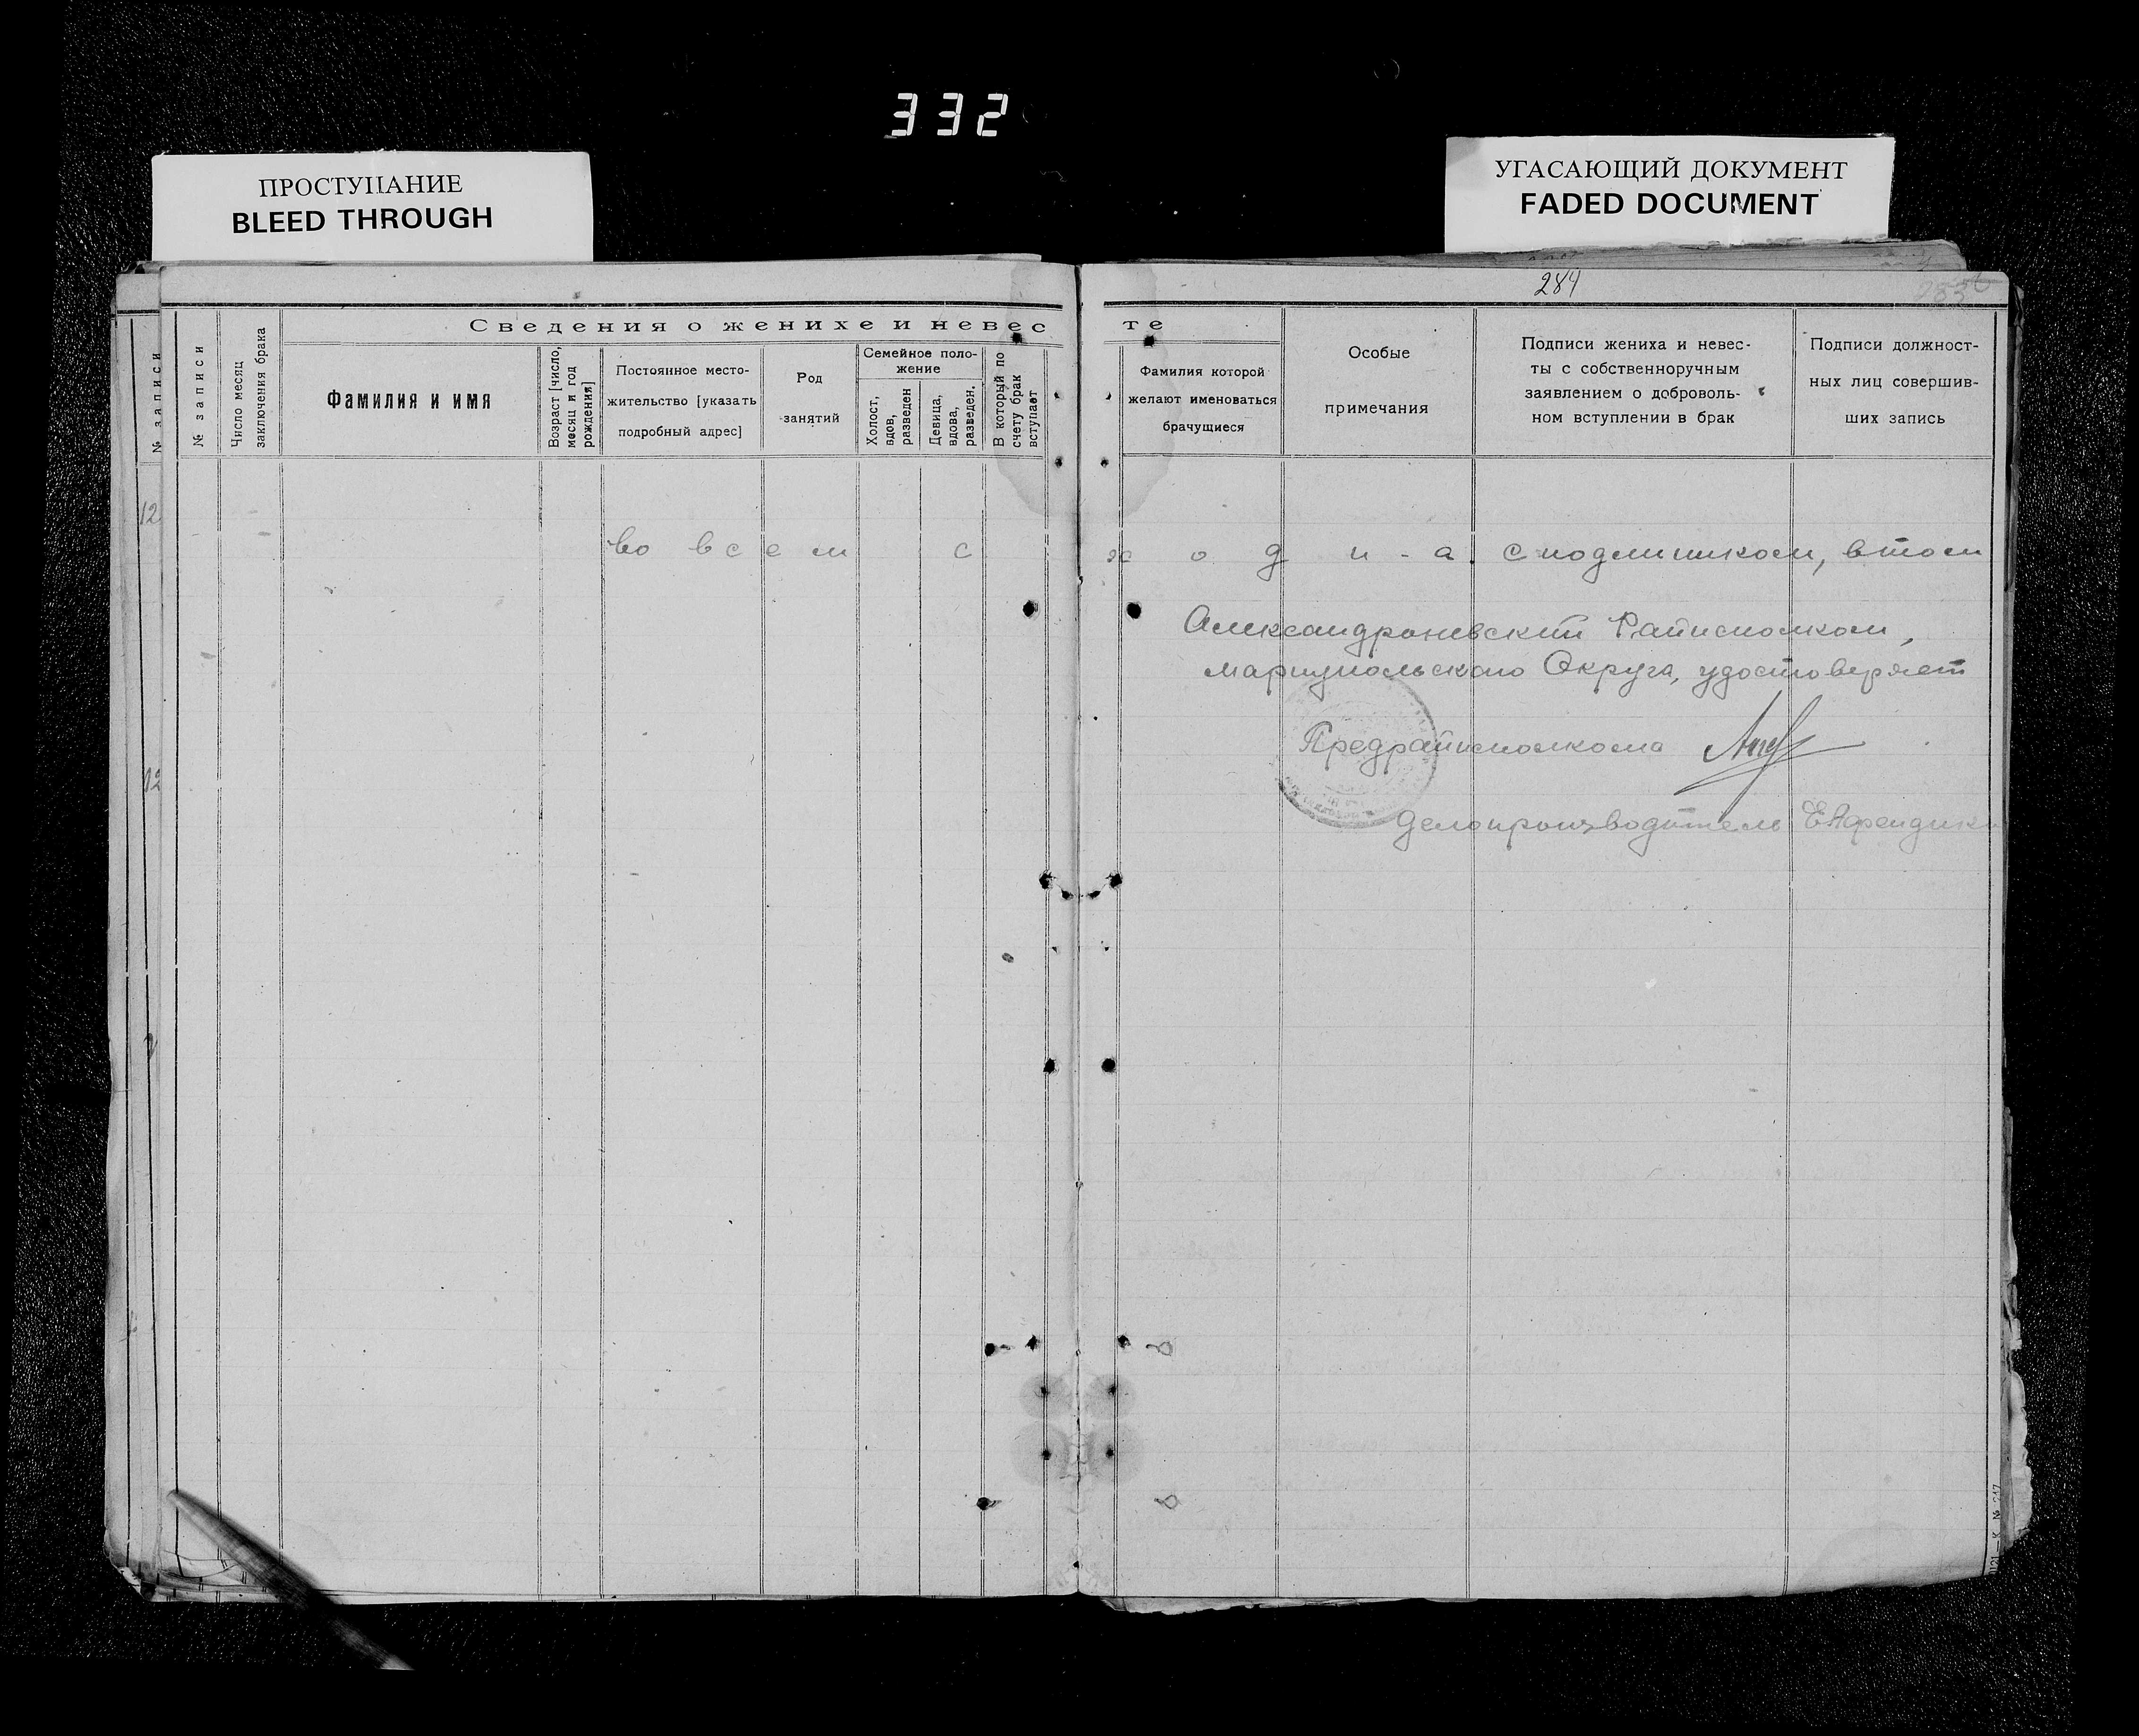 332
ПРОСТУПАНИЕ
BLEED THROUGH
УГАСАЮЩИЙ ДОКУМЕНТ
FADED DOCUMENT
284
Сведения о женихе и невес
те
№ записи
№ записи
Число месяц
заключения брака
Фамилия и имя
Возраст [число,
месяц и год
рождения]
Постоянное место-
жительство [указать
подробный адрес]
Род
занятий
Семейное поло-
жение
Холост,
вдов,
разведен
Девица,
вдова,
разведен.
В который по
счету брак
вступает
Фамилия которой
желают именоваться
брачущиеся
Особые
примечания
Подписи жениха и невес-
ты с собственноручным
заявлением о доброволь-
ном вступлении в брак
Подписи должност-
ных лиц совершив-
ших запись
12
во всем сходн-а с подлинником, в том
Александроневский Райисполком,
Мариупольского Округа, удостоверяет
Предрайисполкома
12
Делопроизводитель